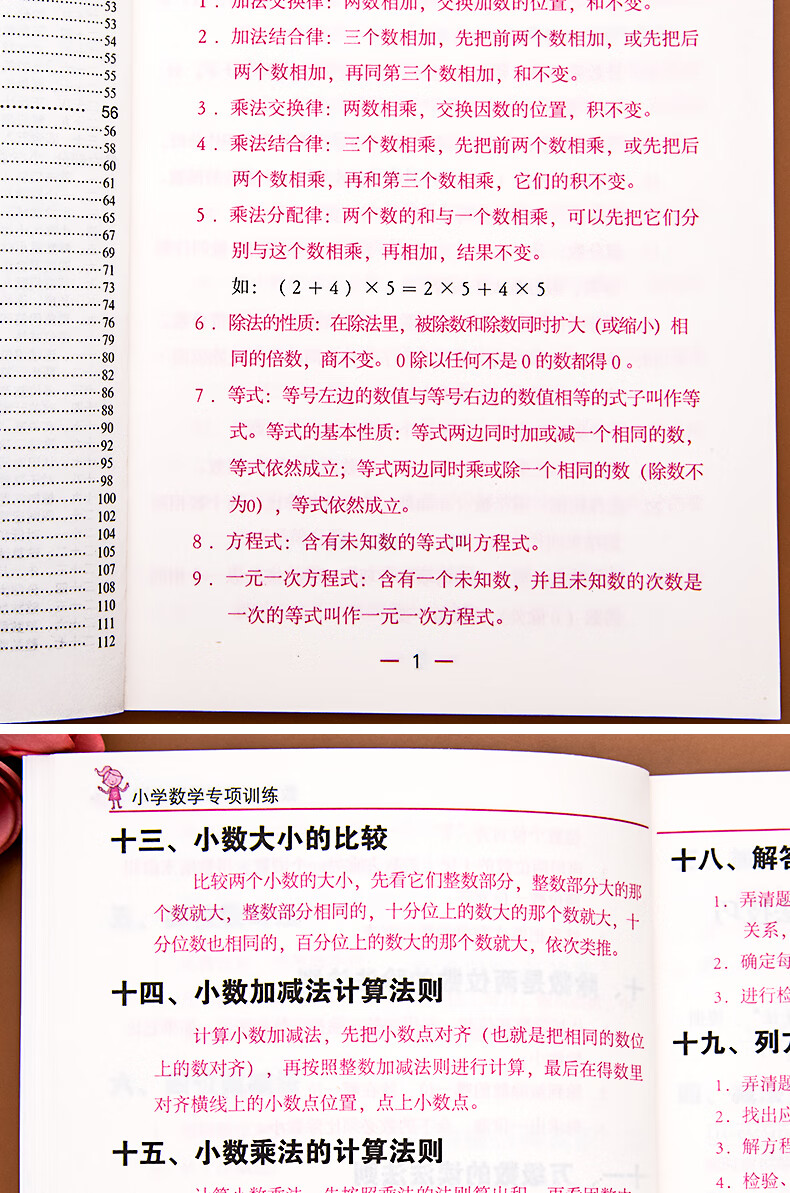 53
53
54
55
55
55
56
56
58
60
61
64
65
67
69
71
73
74
76
79
80
82
86
88
90
92
95
98
100
102
104
105
107
108
110
111
112
1．加法交换律：两数相加，交换加数的位置，和不变。
2．加法结合律：三个数相加，先把前两个数相加，或先把后
两个数相加，再同第三个数相加，和不变。
3．乘法交换律：两数相乘，交换因数的位置，积不变。
4．乘法结合律：三个数相乘，先把前两个数相乘，或先把后
两个数相乘，再和第三个数相乘，它们的积不变。
5．乘法分配律：两个数的和与一个数相乘，可以先把它们分
别与这个数相乘，再相加，结果不变。
如：（2＋4）×5＝2×5＋4×5
6．除法的性质：在除法里，被除数和除数同时扩大（或缩小）相
同的倍数，商不变。0除以任何不是0的数都得0。
7．等式：等号左边的数值与等号右边的数值相等的式子叫作等
式。等式的基本性质：等式两边同时加或减一个相同的数，
等式依然成立；等式两边同时乘或除一个相同的数（除数不
为0），等式依然成立。
8．方程式：含有未知数的等式叫方程式。
9．一元一次方程式：含有一个未知数，并且未知数的次数是
一次的等式叫作一元一次方程式。
— 1 —
小学数学专项训练
十三、小数大小的比较
比较两个小数的大小，先看它们整数部分，整数部分大的那
个数就大，整数部分相同的，十分位上的数大的那个数就大，十
分位数也相同的，百分位上的数大的那个数就大，依次类推。
十四、小数加减法计算法则
计算小数加减法，先把小数点对齐（也就是把相同的数位
上的数对齐），再按照整数加减法则进行计算，最后在得数里
对齐横线上的小数点位置，点上小数点。
十五、小数乘法的计算法则
计算小数乘法，先按照乘法的法则算出积，再看因数中
十八、解答
1．弄清题
关系，
2．确定每
3．进行检
十九、列方
1．弄清题
2．找出应
3．解方程
4．检验、